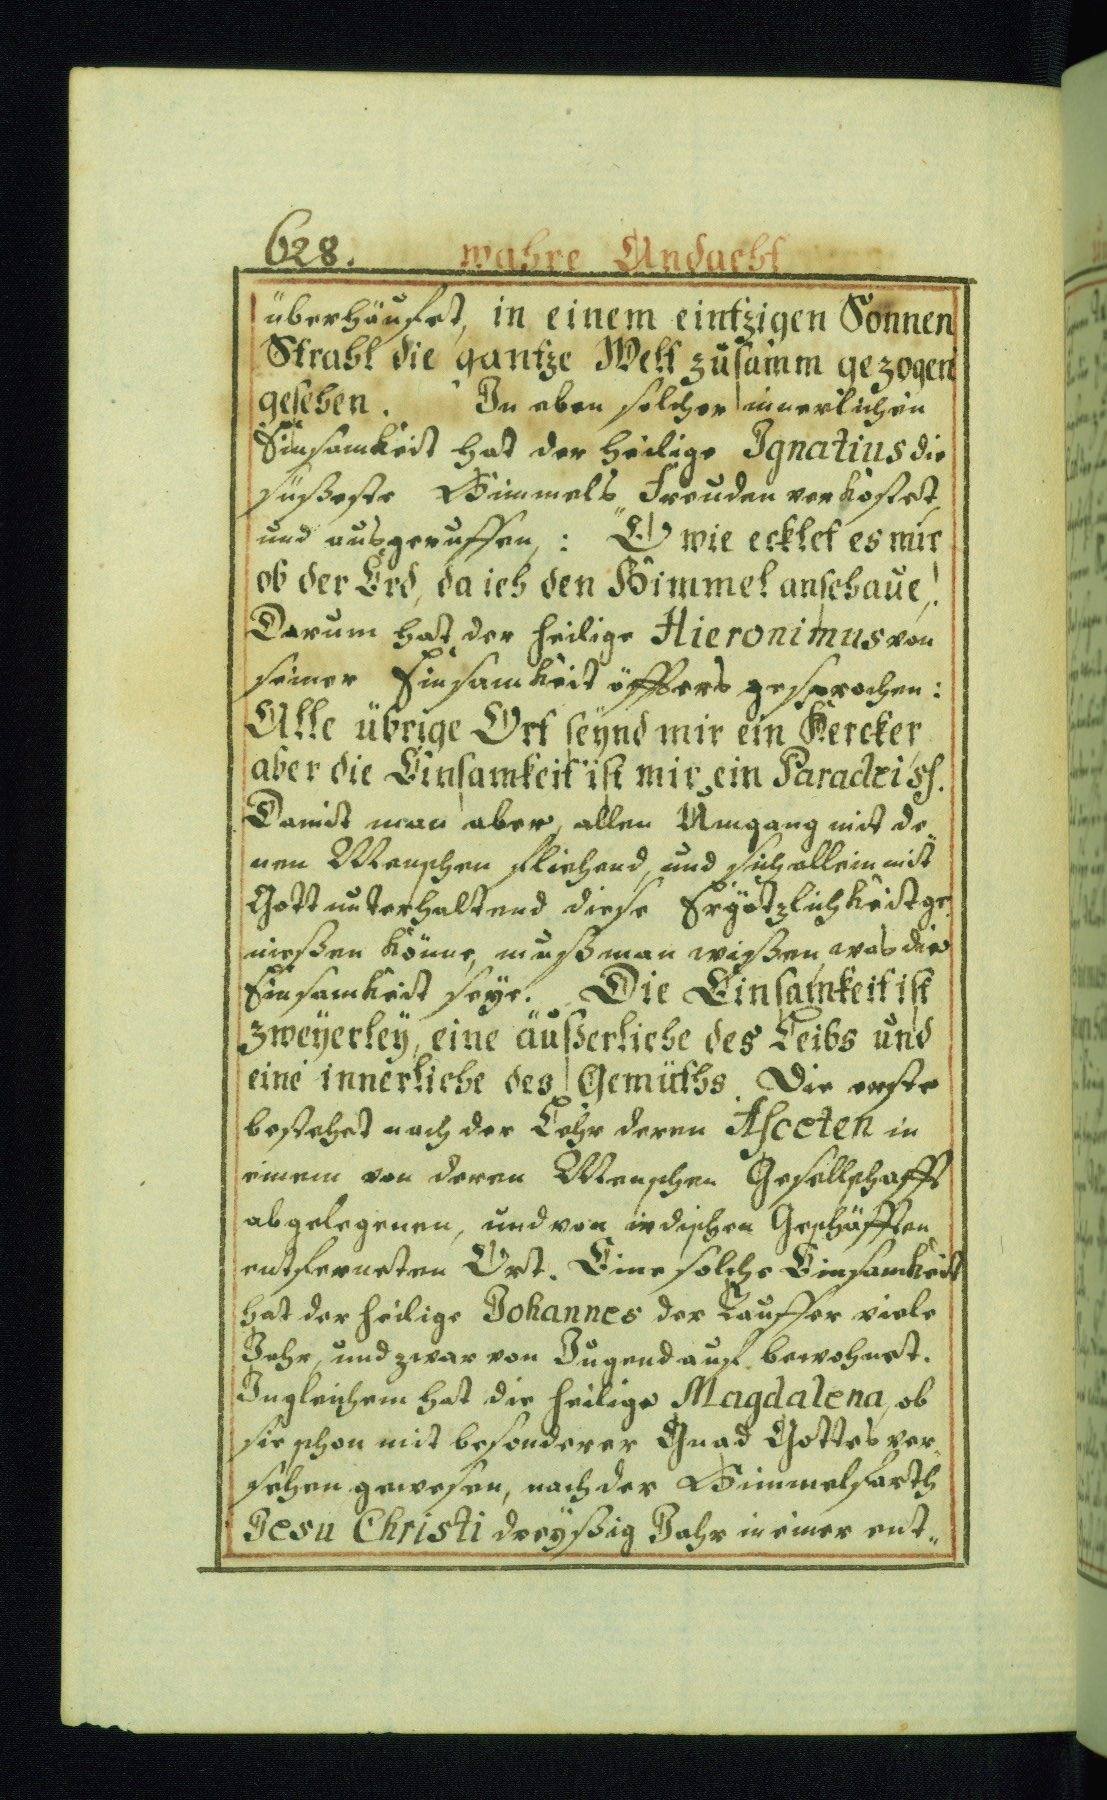 628. wahre Andacht
überhäuffet, in einem eintzigen Sonnen
Strahl die gantze Welt zusamm gezogen
gesehen. In eben solcher innerlichen
Einsamkeit hat der heilige Ignatius die
süßeste Himmels Freuden verkostet,
und ausgeruffen,: O wie ecklet es mir
ob der Erd, da ich den Himmel anschaue,!
Darum hat der heilige Hieronimus von
seiner Einsamkeit öffters gesprochen:
Alle übrige Ort seynd mir ein Kercker
aber die Einsamkeit ist mir ein Paradeiss.
Damit man aber, allen Umgang mit de„
nen Menschen fliehend, und sich allein mit
Gott unterhaltend diese Ergötzlichkeit ge„
nießen könne, muß man wißen, was die
Einsamkeit seye. Die Einsamkeit ist
zweyerley, eine äußerliche des Leibs und
eine innerliche des Gemüths. Die erste
bestehet nach der Lehr deren Asceten in
einem von deren Menschen Gesellschafft
abgelegenen, und von irdischen Geschäfften
entferneten Ort. Eine solche Einsamkeit
hat der heilige Johannes der Tauffer viele
Jahr, und zwar von Jugend auf bewohnet.
Ingleichem hat die heilige Magdalena, ob
sie schon mit besonderer Gnad Gottes ver„
sehen gewesen, nach der Himmelfarth
Jesu Christi dreyßig Jahr in einer ent„